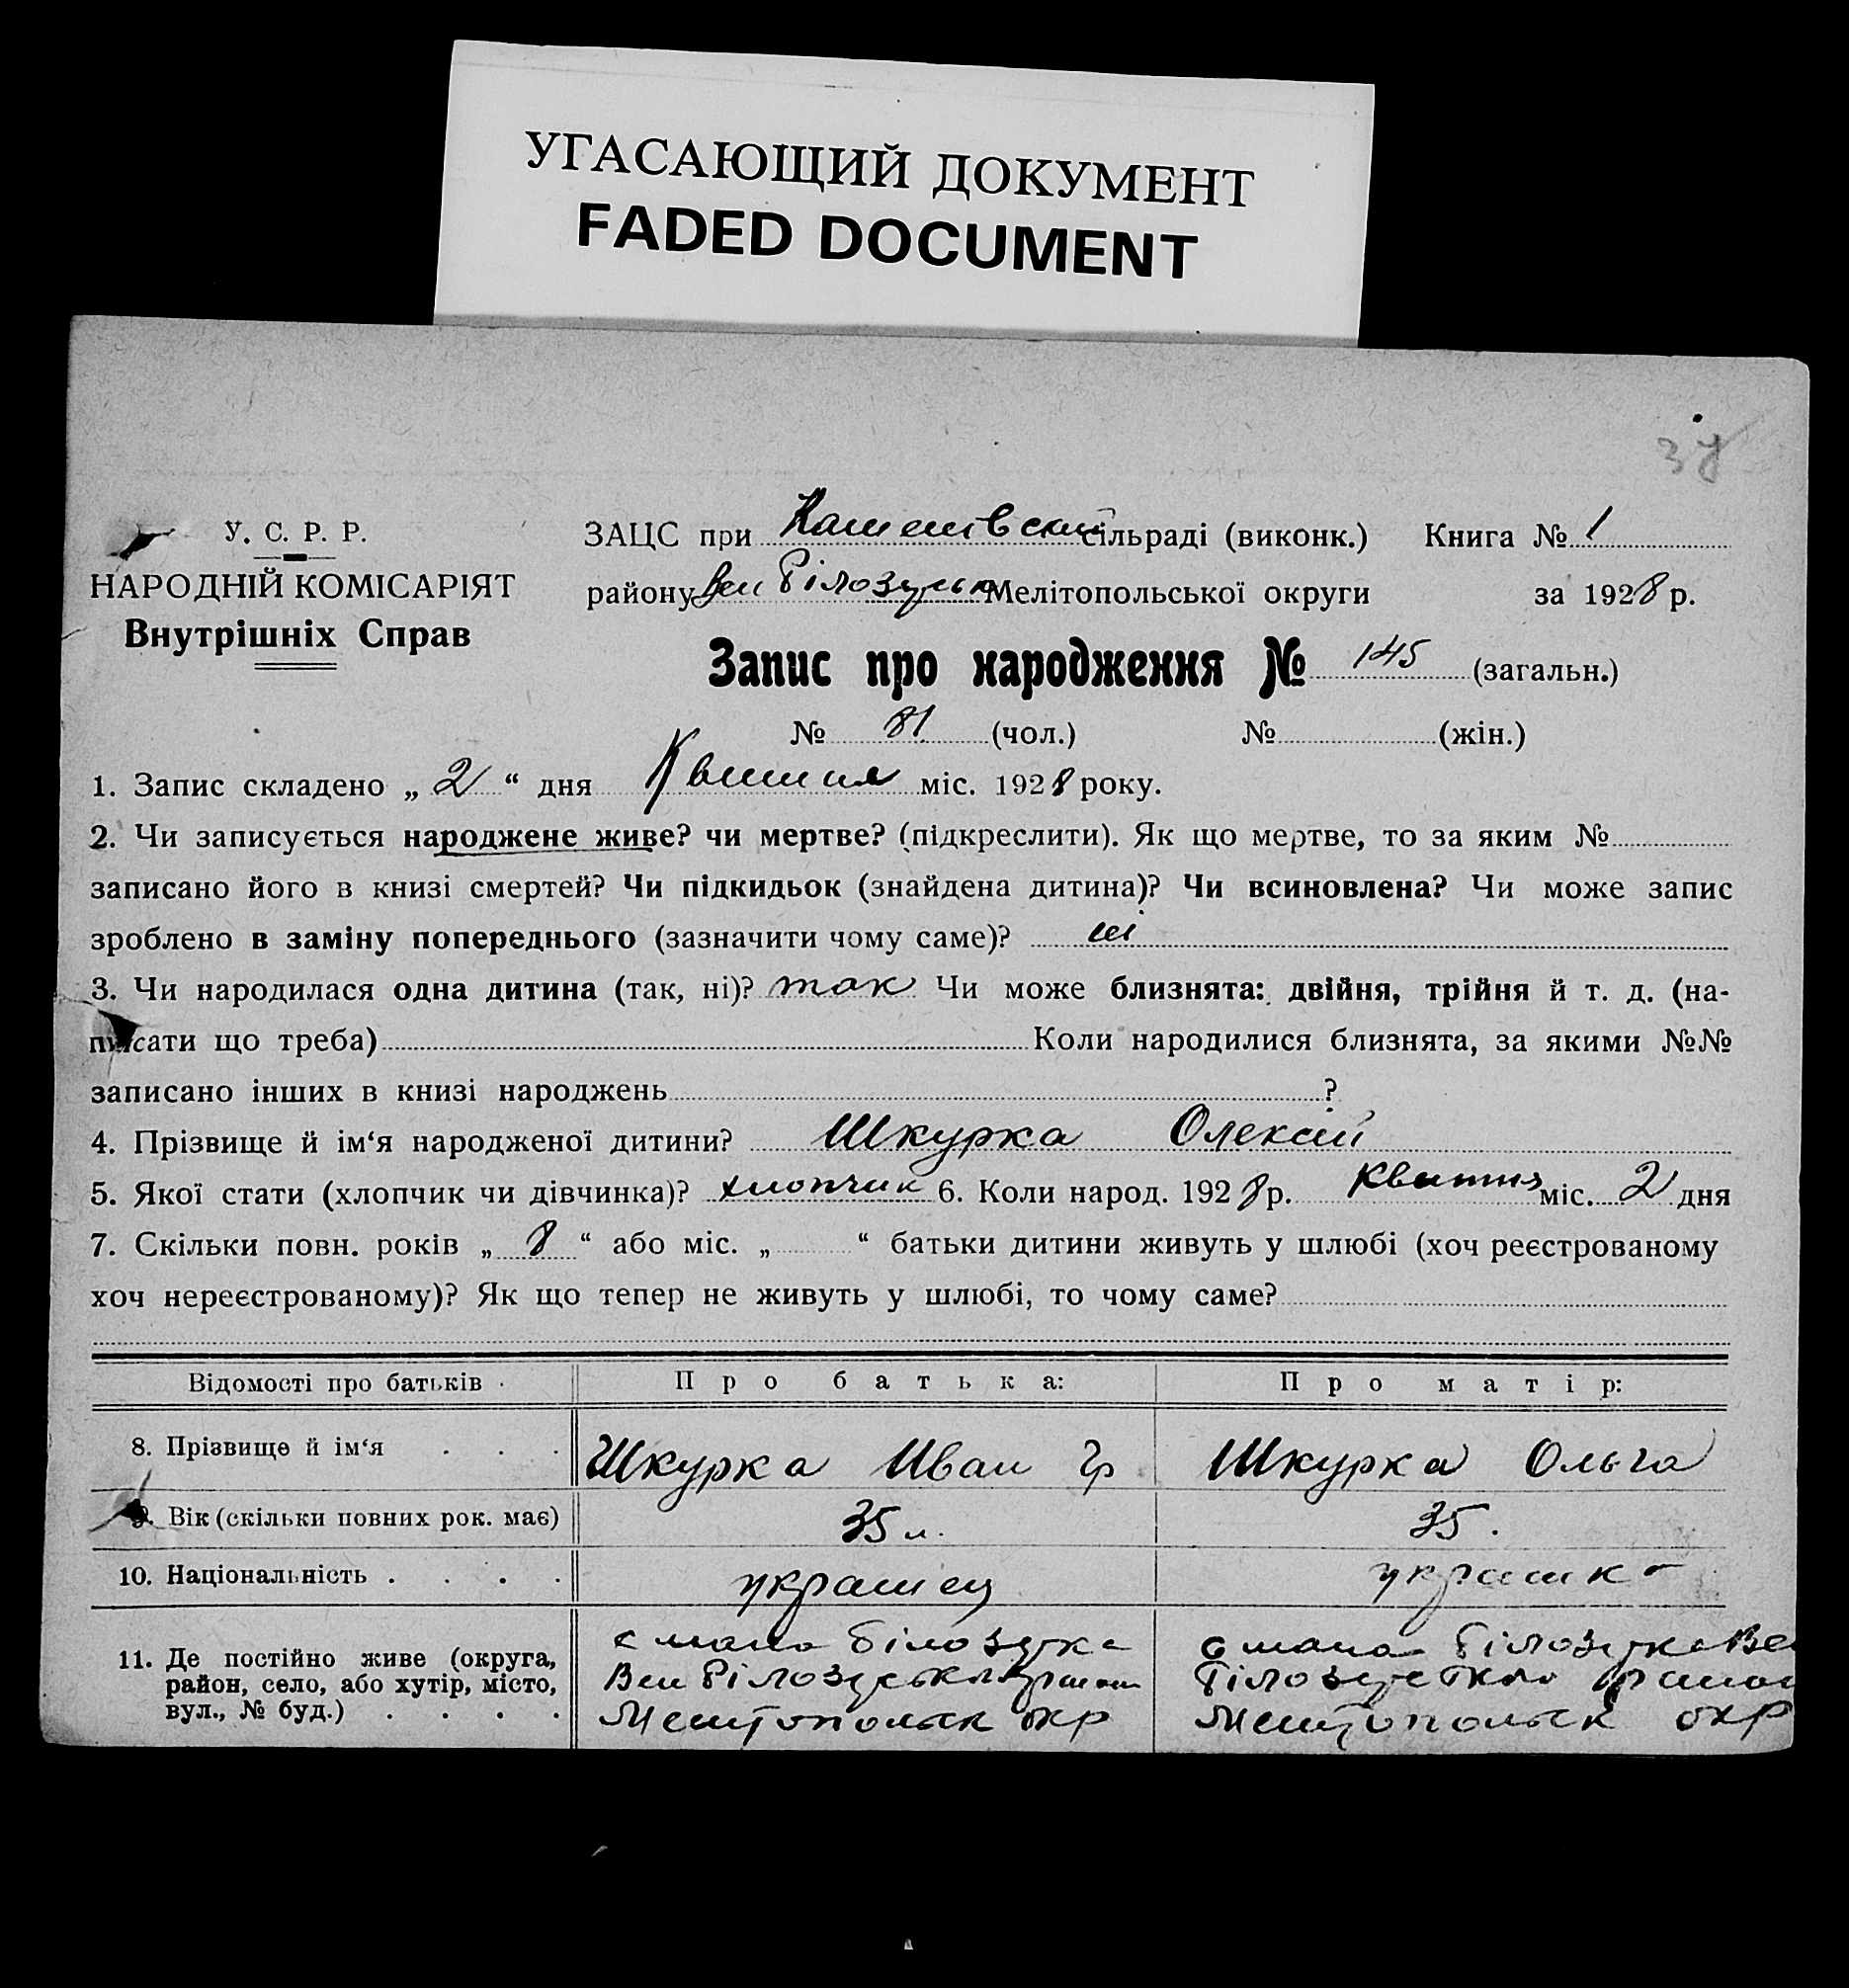 УГАСАЮЩИЙ ДОКУМЕНТ
FADED DOCUMENT
У. С. Р. Р.
НАРОДНІЙ КОМІСАРІЯТ
Внутрішніх Справ
ЗАЦС при сільраді (виконк.) Книга № 1
району Вел Білозерськ Мелітопольської округи за 1928 р.
Запис про народження № 145 (загальн.)
№ 81 (чол.) № (жін.)
1. Запис складено „ 2 “ дня Квитня міс. 1928 року.
2. Чи записується народжене живе? чи мертве? (підкреслити). Як що мертве, то за яким №
записано його в книзі смертей? Чи підкидьок (знайдена дитина)? Чи всиновлена? Чи може запис
зроблено в заміну попереднього (зазначити чому саме)? ні
3. Чи народилася одна дитина (так, ні)? так Чи може близнята: двійня, трійня й т. д. (на-
писати що треба) Коли народилися близнята, за якими №№
записано інших в книзі народжень ?
4. Прізвище й ім‘я народженої дитини? Шкурка Олексій
5. Якої стати (хлопчик чи дівчинка)? хлопчик 6. Коли народ. 1928 р. Квитня міс. 2 дня
7. Скільки повн. років „ 8 “ або міс. „ “ батьки дитини живуть у шлюбі (хоч реєстрованому
хоч нереєстрованому)? Як що тепер не живуть у шлюбі, то чому саме?
Відомості про батьків Про батька: Про матір:
8. Прізвище й ім‘я . . . Шкурка Иван Гр Шкурка Ольга
9. Вік (скільки повних рок. має) 35 л. 35.
10. Національність . . . . украинец украинка
11. Де постійно живе (округа,
район, село, або хутір, місто,
вул., № буд.) . . . .
с мала Білозерка
Вел Білозерського район
Мелітопольск окр
с мала Білозерка Ве
Білозерского район
Мелітопольск окр